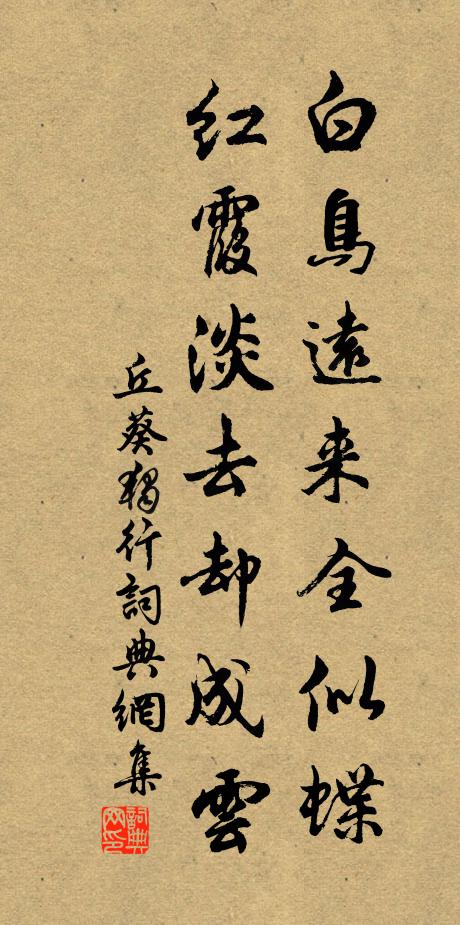 白鳥遠来全似蝶
紅霞淡去却成雲
丘葵獨行詞典網集
詞典网印